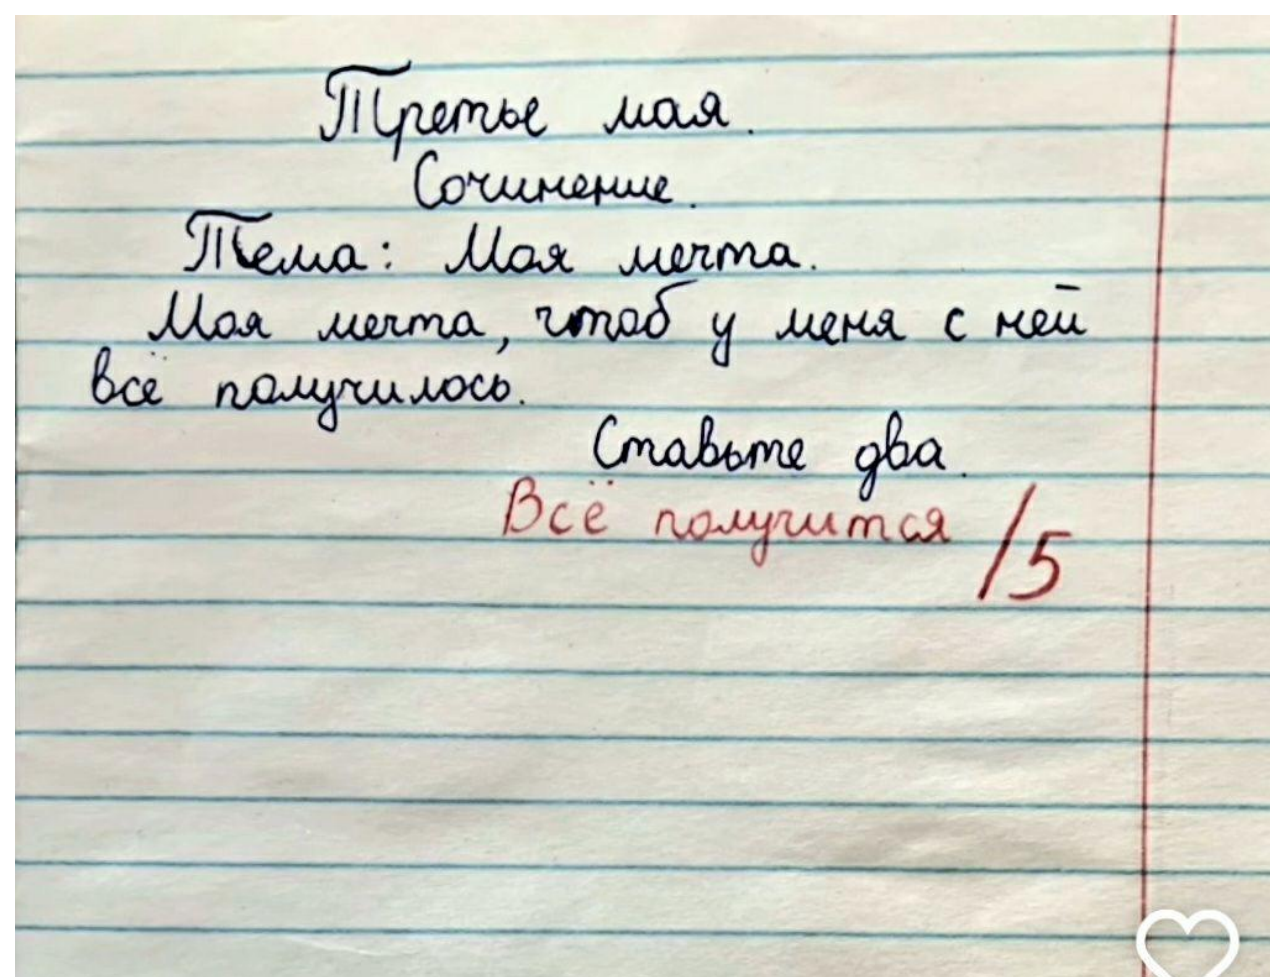 Третье мая.
Сочинение.
Тема: Моя мечта.
Моя мечта, чтоб у меня с ней
всё получилось.
Ставьте два.
Всё получится /5